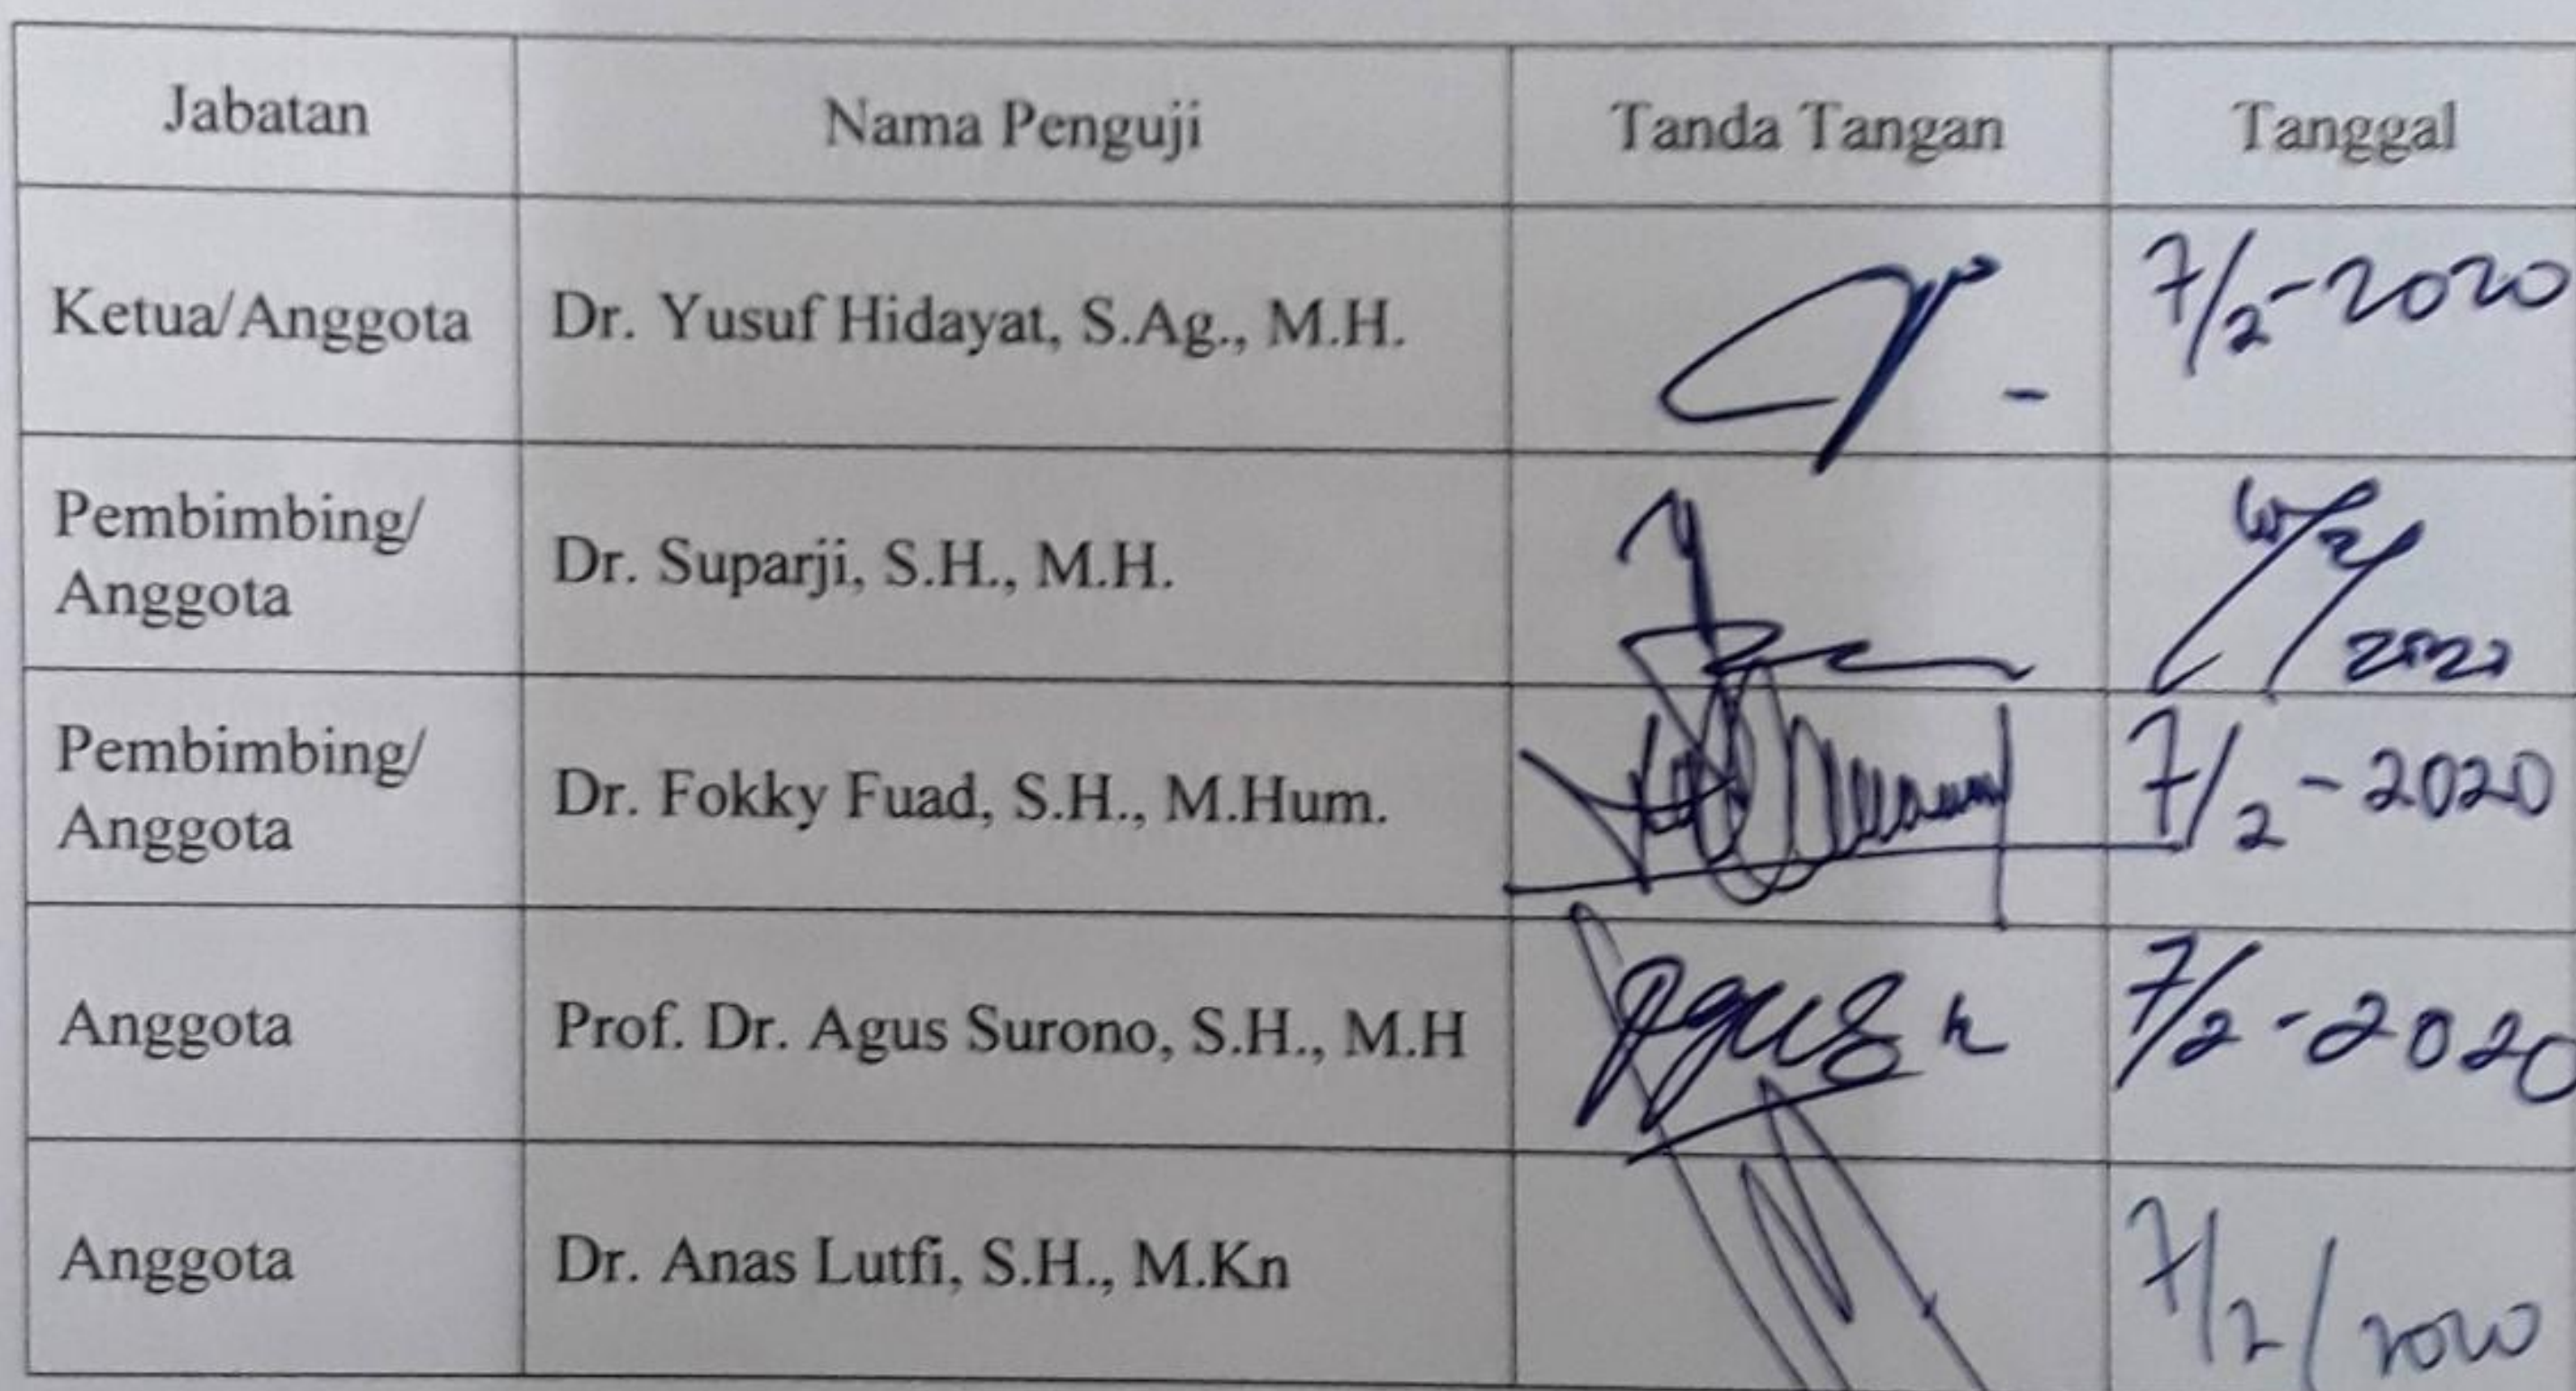 Jabatan Nama Penguji Tanda Tangan Tanggal
Ketua/Anggota Dr. Yusuf Hidayat, S.Ag., M.H. 7/2-2020
Pembimbing/
Anggota
Dr. Suparji, S.H., M.H.
2020
Pembimbing/
Anggota
Dr. Fokky Fuad, S.H., M.Hum. 7/2-2020
Anggota Prof. Dr. Agus Surono, S.H., M.H 7/2-2020
Anggota Dr. Anas Lutfi, S.H., M.Kn 7/2/2020